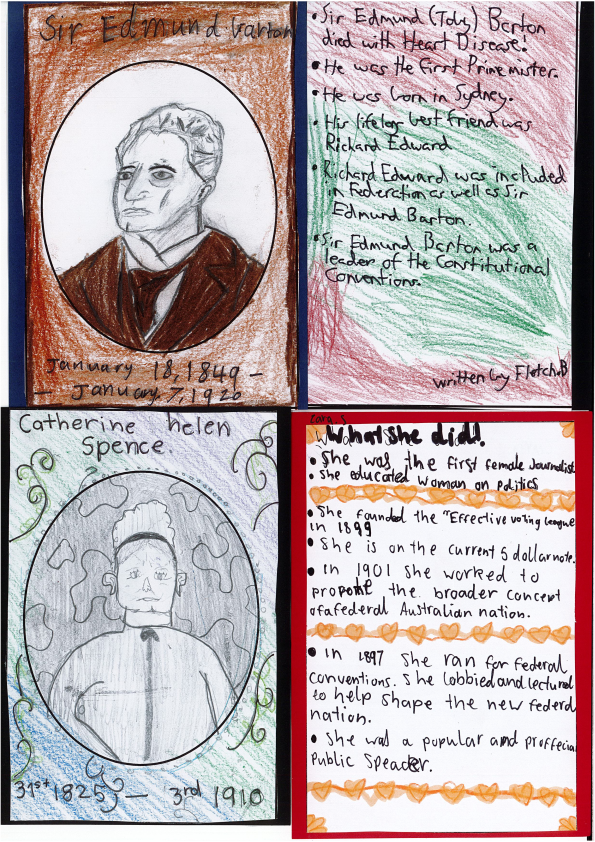 Sir Edmund barton
January 18, 1849 –
– January 7, 1920
• Sir Edmund (Toby) Barton
died with Heart Disease!
• He was the first Prime mister.
• He was born in Sydney.
• His lifelong best friend was
Richard Edward
• Richard Edward was included
in Federation as well as Sir
Edmund Barton.
• Sir Edmund Barton was a
leader of the Constitutional
Conventions.
written by Fletch.B
Catherine helen
Spence.
31st 1825 – 3rd 1910
Cara. S
What she did.
• She was the first female Journalist
• She educated woman on politics
• She founded the "Effective voting league
in 1899
• She is on the current 5 dollar note.
• In 1901 She worked to
the broader concept
of a federal Australian nation.
• In 1897 She ran for federal
conventions. She lobbied and lectured
to help shape the new federal
nation.
• She was a popular and
Public Speaker.